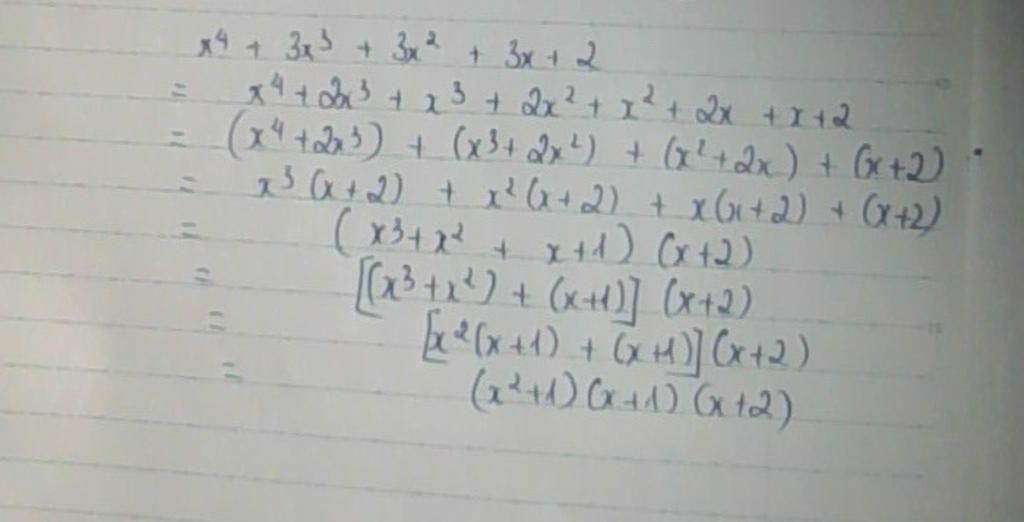 x⁴ + 3x³ + 3x² + 3x + 2
= x⁴ + 2x³ + x³ + 2x² + x² + 2x + x + 2
= (x⁴ + 2x³) + (x³ + 2x²) + (x² + 2x) + (x + 2)
= x³ (x + 2) + x² (x + 2) + x(x + 2) + (x + 2)
= (x³ + x² + x + 1) (x + 2)
= [(x³ + x²) + (x + 1)] (x + 2)
= [x² (x + 1) + (x + 1)] (x + 2)
= (x² + 1) (x + 1) (x + 2)